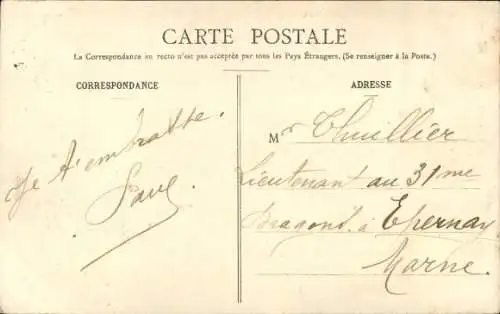 CARTE POSTALE
La Correspondance au recto n'est pas acceptée par tous les Pays Étrangers. (Se renseigner à la Poste.)
CORRESPONDANCE
Je t'embrasse.
Paul
ADRESSE
Mr Thuillier
Lieutenant au 31me
Dragons à Epernay
Marne.